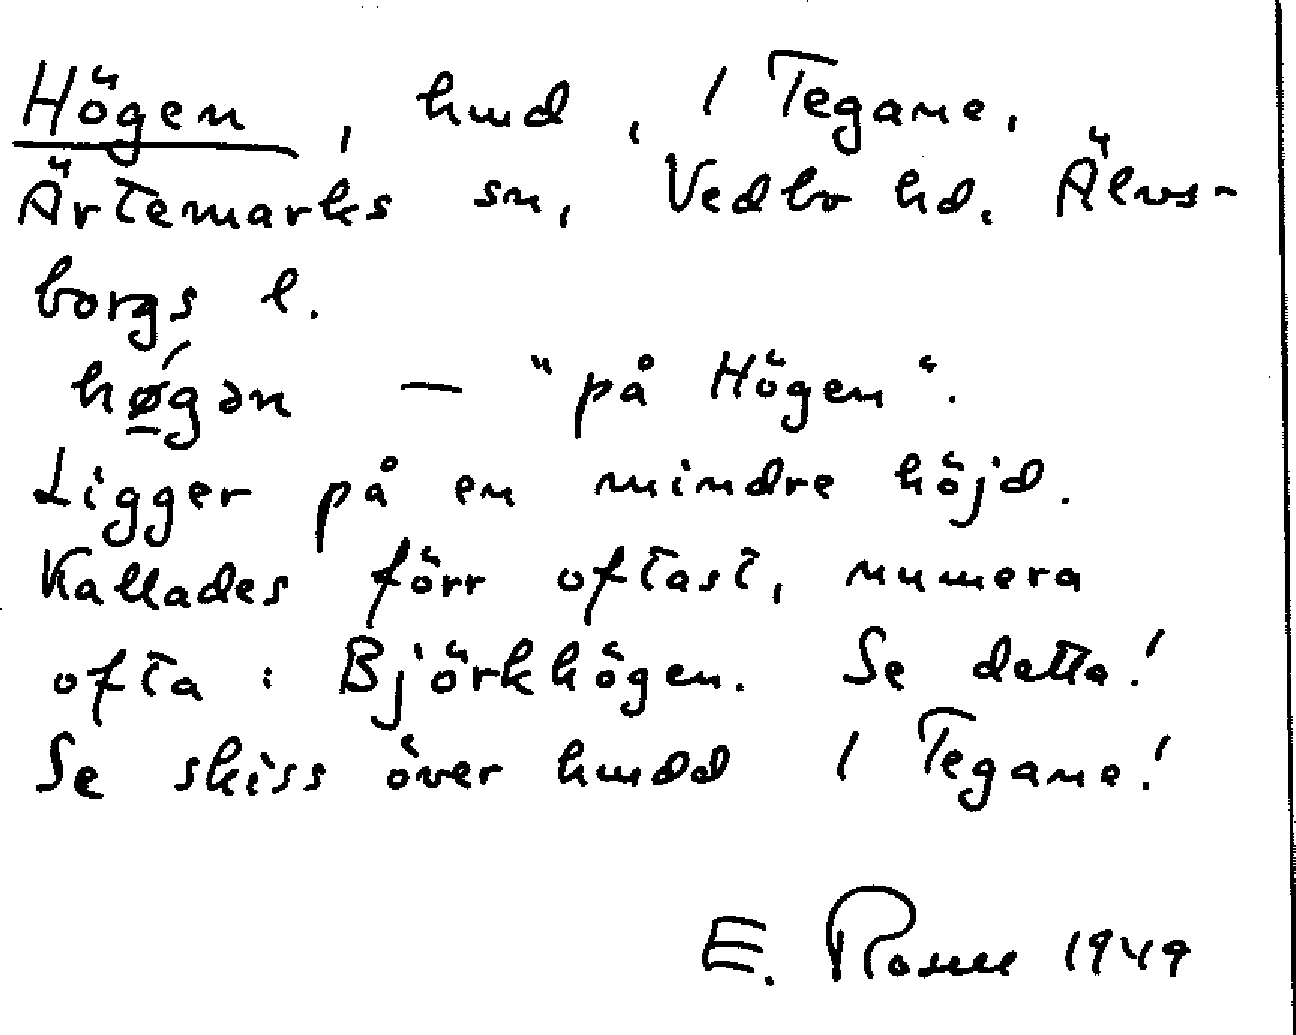 Högen, hmd, 1 Tegane,
Ärtemarks sn, Vedbo hd. Älvs-
borgs l.
hǿ̲gən — "på Högen".
Ligger på en mindre höjd.
Kallades förr oftast, numera
ofta: Björkhögen. Se detta!
Se skiss över hmdd 1 Tegane!
E. 1949